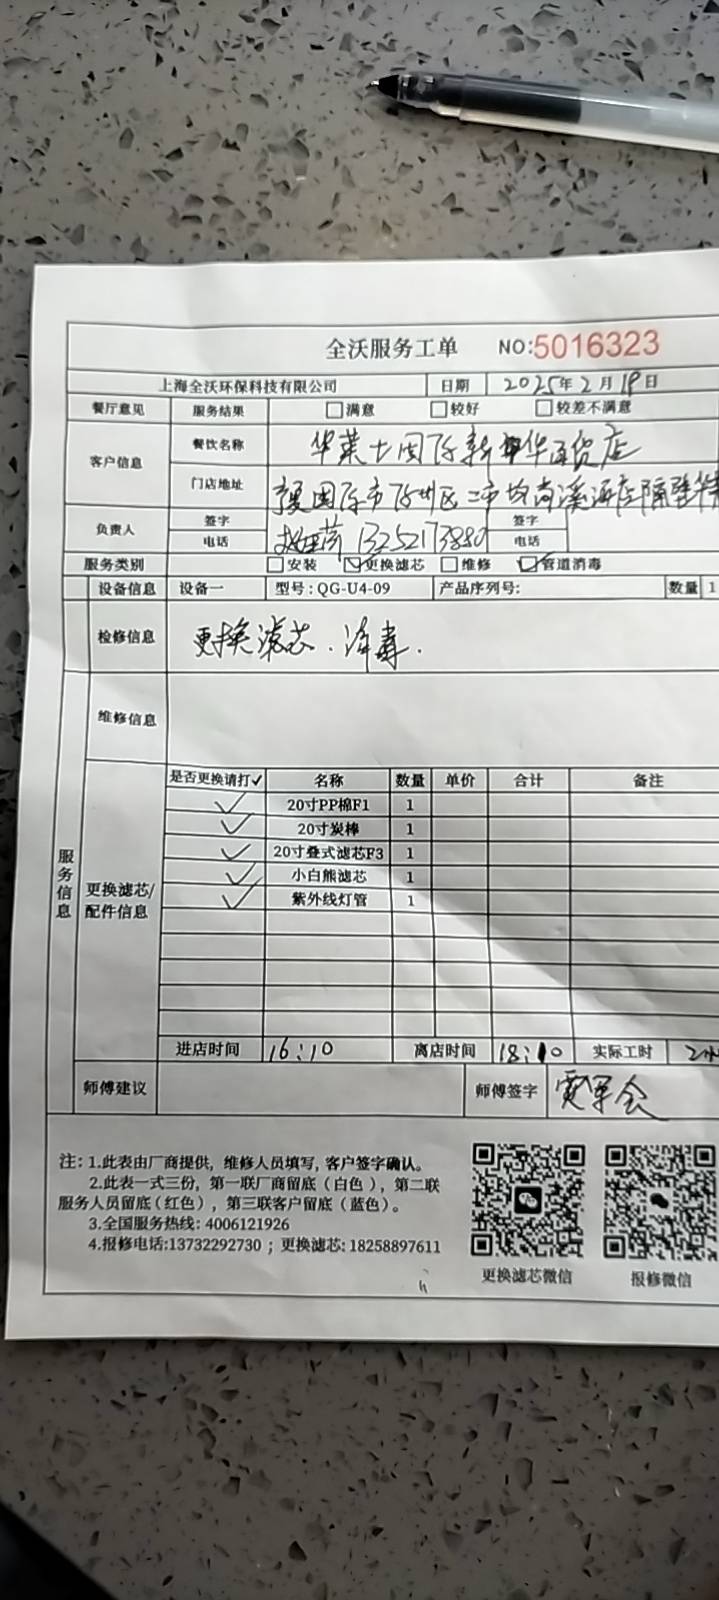 全沃服务工单 NO:5016323
上海全沃环保科技有限公司 日期 2025年2月19日
餐厅意见 服务结果 □满意 □较好 □较差不满意
客户信息 餐饮名称 华莱士 新华 百货店
门店地址
负责人 签字 签字
电话 13252173880 电话
服务类别 □安装 ☑更换滤芯 □维修 ☑管道消毒
设备信息 设备一 型号:QG-U4-09 产品序列号: 数量 1
检修信息 更换滤芯.消毒.
维修信息
服务信息
更换滤芯/配件信息
是否更换请打✓ 名称 数量 单价 合计 备注
✓ 20寸PP棉F1 1
✓ 20寸炭棒 1
✓ 20寸叠式滤芯F3 1
✓ 小白熊滤芯 1
✓ 紫外线灯管 1
进店时间 16:10 离店时间 18:10 实际工时 2小
师傅建议 师傅签字
注: 1.此表由厂商提供, 维修人员填写, 客户签字确认。
2.此表一式三份, 第一联厂商留底(白色), 第二联
服务人员留底(红色), 第三联客户留底(蓝色)。
3.全国服务热线: 4006121926
4.报修电话:13732292730 ; 更换滤芯: 18258897611
更换滤芯微信 报修微信